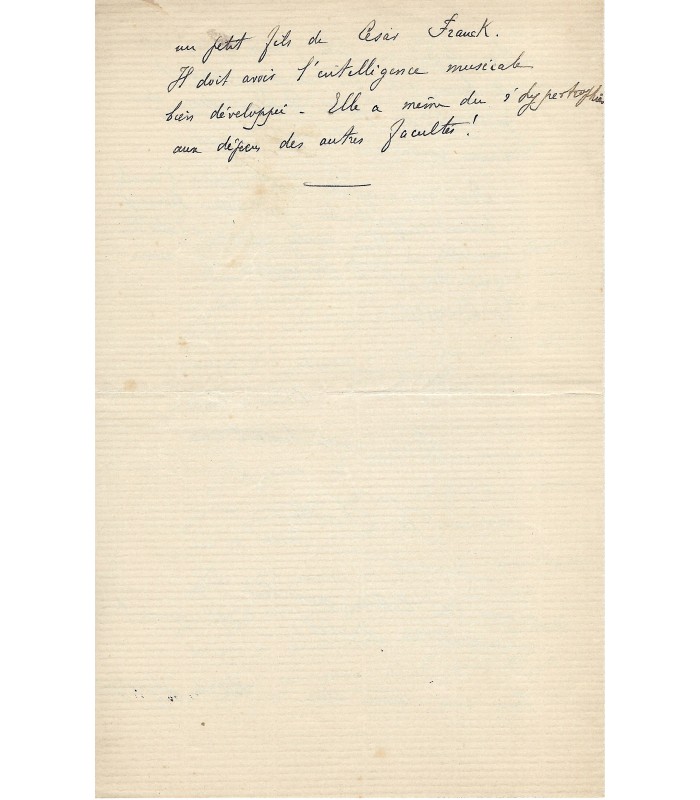 un petit fils de César Franck.
Il doit avoir l'intelligence musicale
bien développée - Elle a même du s'hypertrophier
aux dépens des autres facultés !